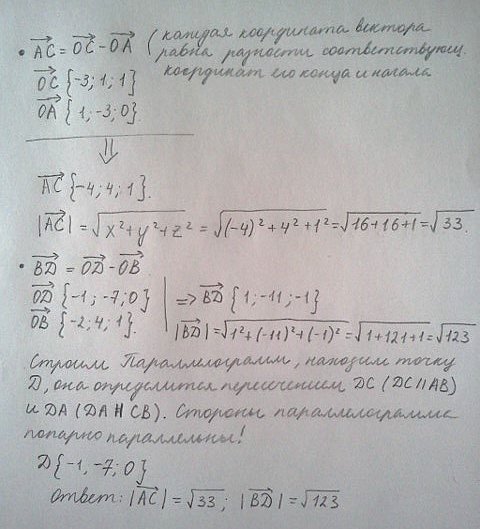 • AC = OC - OA (каждая координата вектора
равна разности соответствующ.
координат его конца и начала
OC {-3; 1; 1}
OA {1; -3; 0}.
⇓
AC {-4; 4; 1}.
|AC| = √x²+y²+z² = √(-4)²+4²+1² = √16+16+1 = √33.
• BD = OD - OB.
OD {-1; -7; 0}
OB {-2; 4; 1}.
=> BD {1; -11; -1}
|BD| = √1²+(-11)²+(-1)² = √1+121+1 = √123
Строим Параллелограмм, находим точку
D, она определится пересечением DC (DC || AB)
и DA (DA || CB). Стороны параллелограмма
попарно параллельны!
D {-1, -7; 0}
Ответ: |AC| = √33; |BD| = √123